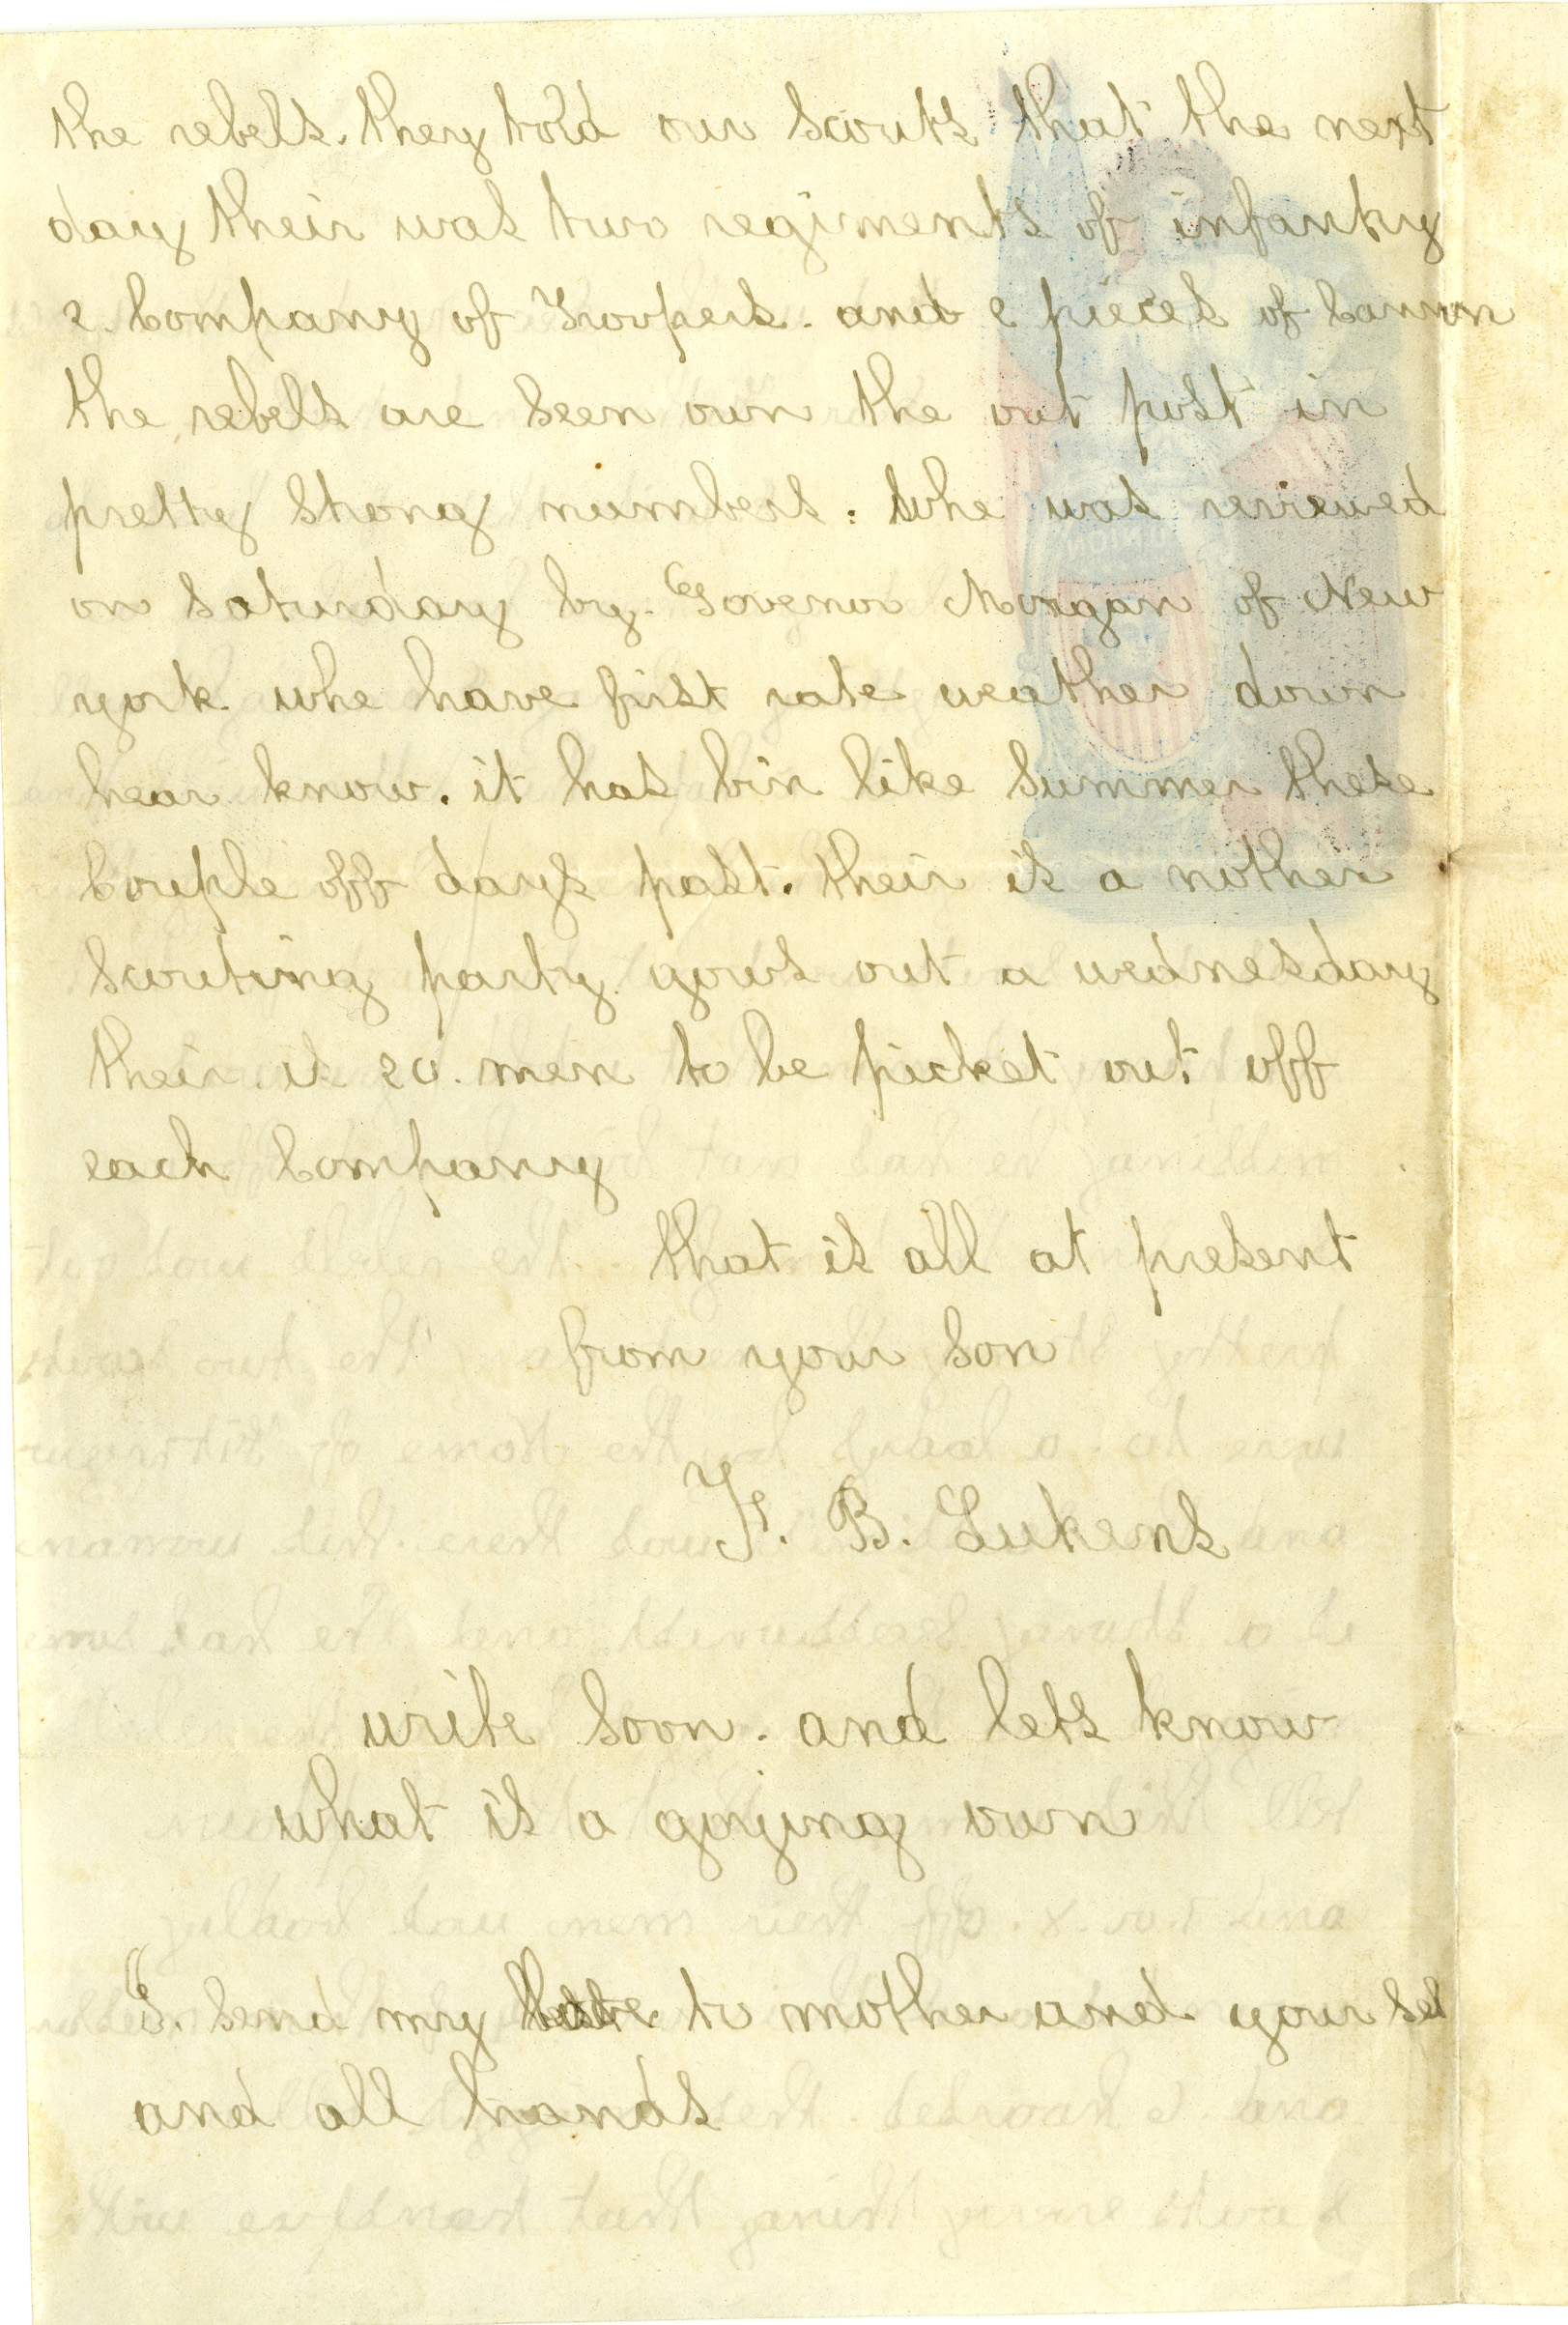 the rebels. they told our scouts that the next
day their was two regiments of infantry
2. Company of Troopers. and 2 pieces of Cannon
the rebels are seen oun the out post in
pretty strong numbers. whe was reviewed
on Saturday by. Govenor Morgan of New
york. whe have first rate weather down
hear know. it has bin like Summer these
Couple off days past. their is a nother
scouting party gows out a wednesday
their is 20. men to be picket out off
each Company
that is all at present
from your Son
F. B. Lukens
write Soon. and lets know
what is a goying oun
I. send my to mother and your sel
and all hands
UNION